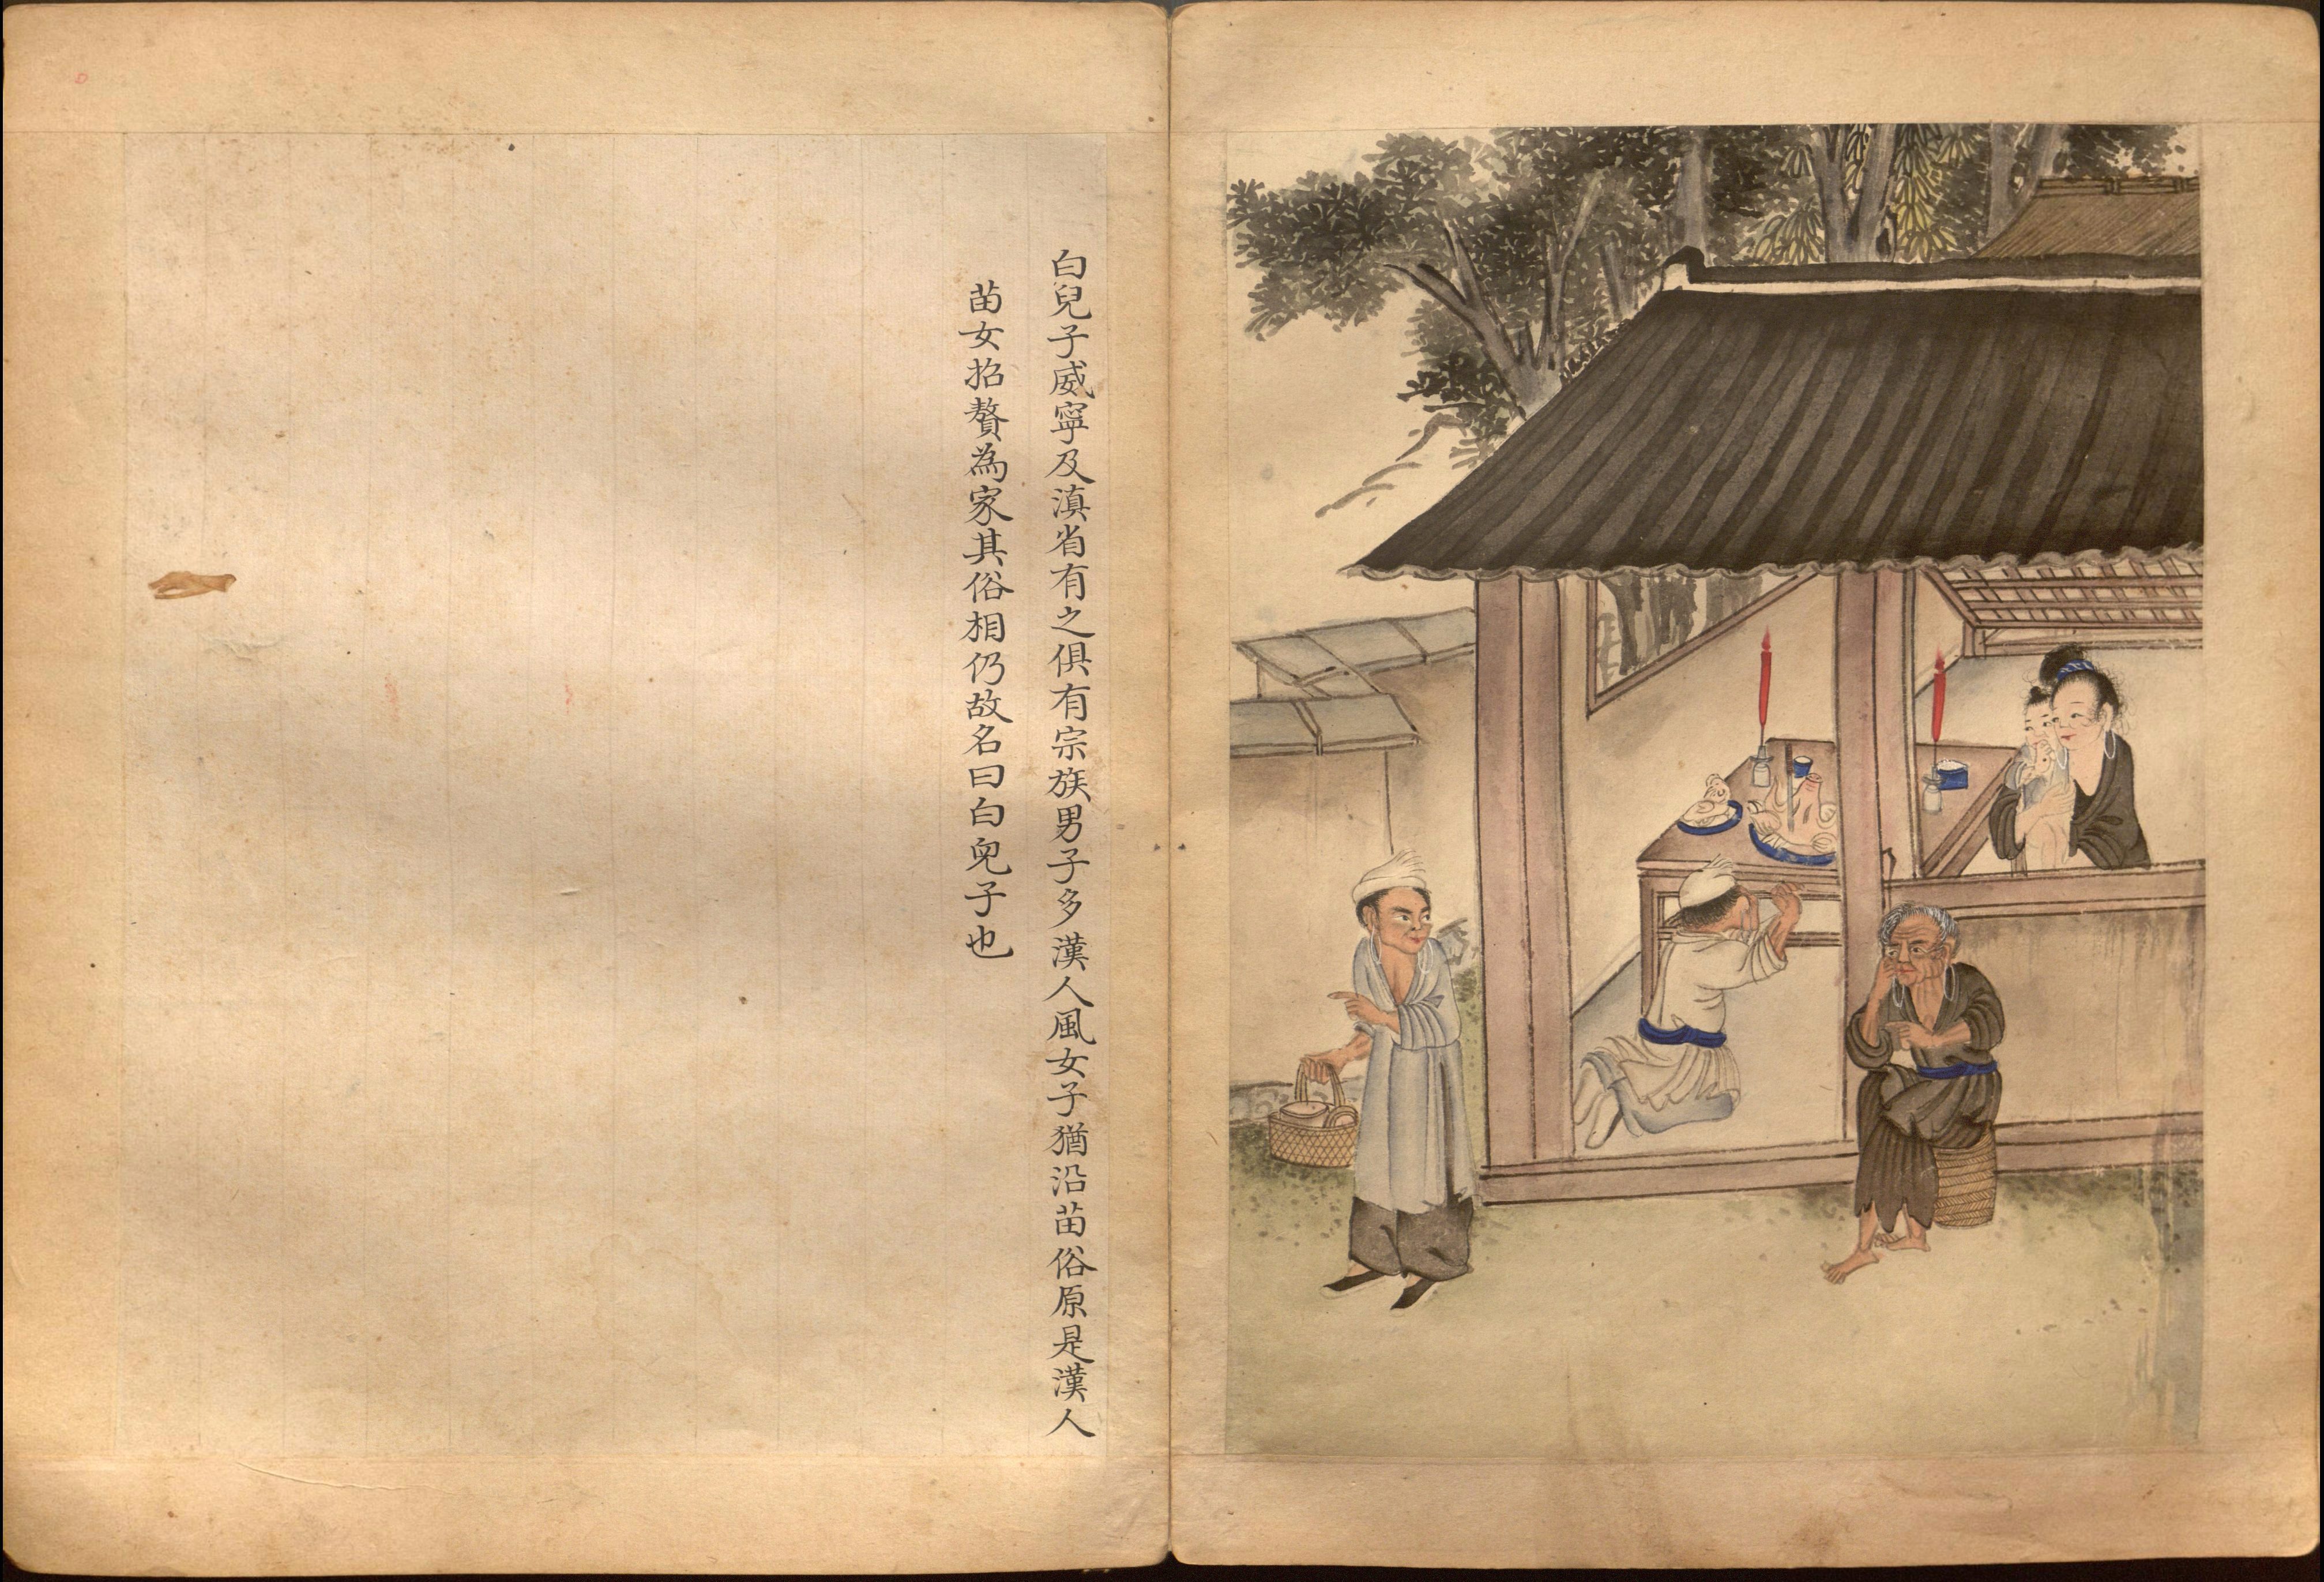 白兒子威寧及滇省有之俱有宗族男子多漢人風女子猶沿苗俗原是漢人
苗女招贅為家其俗相仍故名曰白兒子也